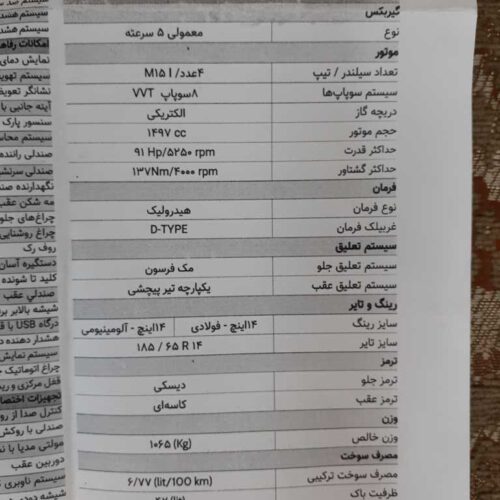 گیربکس
نوع معمولی ۵ سرعته
موتور
تعداد سیلندر / تیپ ۴عدد/ M15 I
سیستم سوپاپ‌ها ۸سوپاپ VVT
دریچه گاز الکتریکی
حجم موتور ۱۴۹۷ cc
حداکثر قدرت ۹۱ Hp/۵۲۵۰ rpm
حداکثر گشتاور ۱۳۷Nm/۴۰۰۰ rpm
فرمان
نوع فرمان هیدرولیک
غربیلک فرمان D-TYPE
سیستم تعلیق
سیستم تعلیق جلو مک فرسون
سیستم تعلیق عقب یکپارچه تیر پیچشی
رینگ و تایر
سایز رینگ ۱۴اینچ - فولادی ۱۴اینچ - آلومینیومی
سایز تایر ۱۸۵ / ۶۵ R ۱۴
ترمز
ترمز جلو دیسکی
ترمز عقب کاسه‌ای
وزن
وزن خالص ۱۰۶۵ (Kg)
مصرف سوخت
مصرف سوخت ترکیبی ۶/۷۷ (lit/100 km)
ظرفیت باک
امکانات
نمایش دمای
سیستم تهویه
آینه جانبی با
سنسور پارک
صندلی راننده
مه شکن عقب
چراغ‌های جلو
روف رک
دستگیره آسان
کلید تا شونده
صندلی عقب
درگاه USB با
هشدار دهنده
سیستم نمایش
چراغ اتوماتیک
قفل مرکزی و
کنترل صدا از
صندلی با روکش
مولتی مدیا با
دوربین عقب
سیستم ناوبری